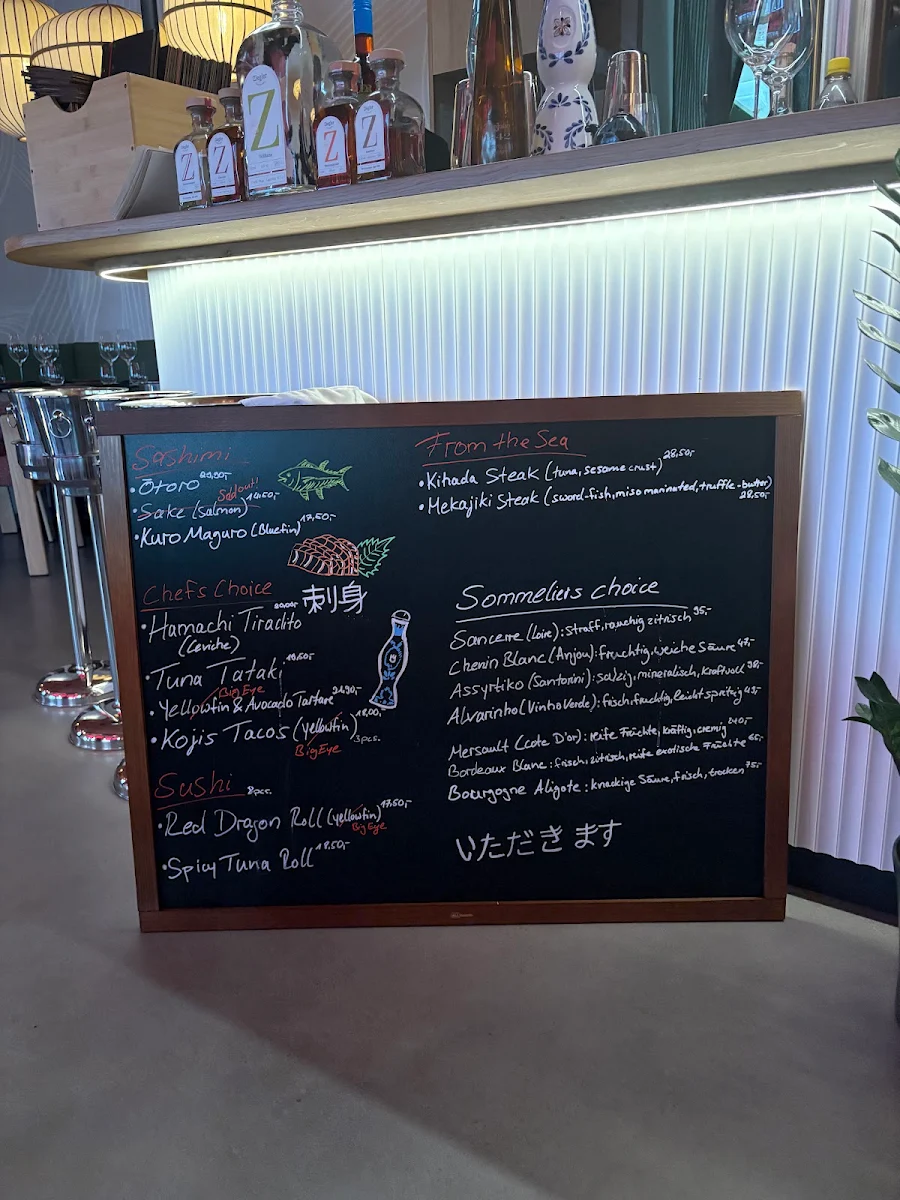 Sashimi
• Ōtoro
• Sake (Salmon) 14,50,-
Sold out!
• Kuro Maguro (Bluefin) 17,50,-
Chef's Choice
刺身
• Hamachi Tiradito
(Ceviche)
• Tuna Tataki 19,50,-
Big Eye
• Yellowfin & Avocado Tartare 21,90,-
• Kojis Tacos (yellowfin) 18,00,-
3pcs.
BigEye
Sushi 8pcs.
• Red Dragon Roll (yellowfin) 17,50,-
BigEye
• Spicy Tuna Roll 18,50,-
From the Sea
• Kihada Steak (tuna, sesame crust) 28,50,-
• Mekajiki Steak (sword-fish, miso marinated, truffle-butter)
28,50,-
Sommeliers choice
Sancerre (Loire): straff, rauchig zitrisch 95,-
Chenin Blanc (Anjou): fruchtig, weiche Säure 47,-
Assyrtiko (Santorini): salzig, mineralisch, kraftvoll
Alvarinho (Vinho Verde): frisch, fruchtig, leicht spritzig 45,-
Mersault (Cote D'or): reife Früchte, kräftig, cremig 240,-
Bordeaux Blanc: frisch, zitrisch, reife exotische Früchte 65,-
Bourgogne Aligote: knackige Säure, frisch, trocken 75,-
いただきます
Z
Z
Z
Z
Z